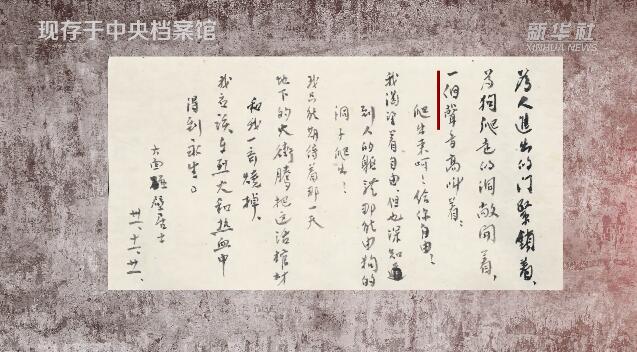 现存于中央档案馆
新华社
XINHUA NEWS
為人進出的门緊鎖着、
为狗爬走的洞敞開着,
一個聲音高叫着:
爬出来呵!给你自由!
我渴望着自由,但也深知道
人的軀體那能由狗的
洞子爬出!
我只能期待着那一天
地下的火衝騰把這活棺材
和我一齐燒掉,
我应该在烈火和熱血中
得到永生。
六面碰壁居士
卅一、十一、廿一、